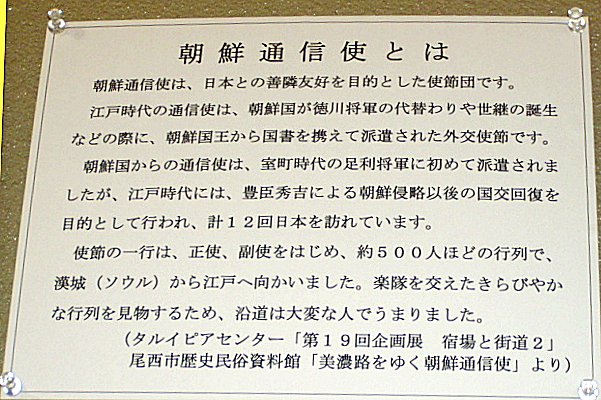 朝鮮通信使とは
朝鮮通信使は、日本との善隣友好を目的とした使節団です。
江戸時代の通信使は、朝鮮国が徳川将軍の代替わりや世継の誕生
などの際に、朝鮮国王から国書を携えて派遣された外交使節です。
朝鮮国からの通信使は、室町時代の足利将軍に初めて派遣されま
したが、江戸時代には、豊臣秀吉による朝鮮侵略以後の国交回復を
目的として行われ、計１２回日本を訪れています。
使節の一行は、正使、副使をはじめ、約５００人ほどの行列で、
漢城（ソウル）から江戸へ向かいました。楽隊を交えたきらびやか
な行列を見物するため、沿道は大変な人でうまりました。
（タルイピアセンター「第１９回企画展　宿場と街道２」
尾西市歴史民俗資料館「美濃路をゆく朝鮮通信使」より）